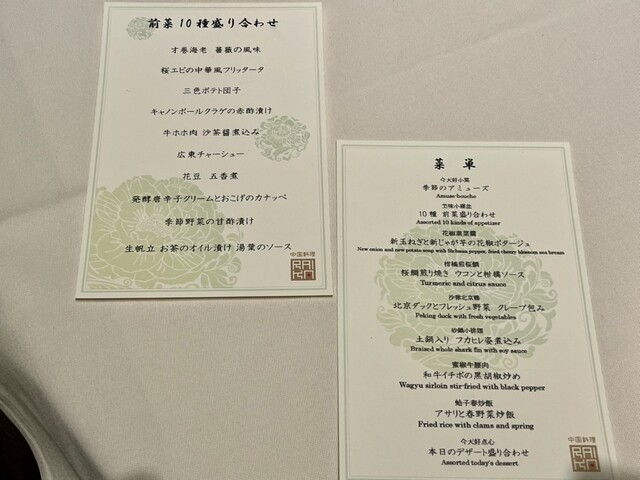 前菜10種盛り合わせ
才巻海老 薔薇の風味
桜エビの中華風フリッタータ
三色ポテト団子
キャノンボールクラゲの赤酢漬け
牛ホホ肉 沙茶醤煮込み
広東チャーシュー
花豆 五香煮
発酵唐辛子クリームとおこげのカナッペ
季節野菜の甘酢漬け
生帆立 お茶のオイル漬け 湯葉のソース
中国料理
菜単
今天好小菜
季節のアミューズ
Amuse-bouche
10種 前菜盛り合わせ
Assorted 10 kinds of appetizer
新玉ねぎと新じゃが芋の花椒ポタージュ
New onion and new potato soup with Sichuan pepper, fried cherry blossom sea bream
桜鯛煎り焼き ウコンと柑橘ソース
Turmeric and citrus sauce
沙律北京鴨
北京ダックとフレッシュ野菜 クレープ包み
Peking duck with fresh vegetables
土鍋入り フカヒレ姿煮込み
Braized whole shark fin with soy sauce
和牛イチボの黒胡椒炒め
Wagyu sirloin stir-fried with black pepper
蛤子春炒飯
アサリと春野菜炒飯
Fried rice with clams and spring
今天好点心
本日のデザート盛り合わせ
Assorted today's dessert
中国料理